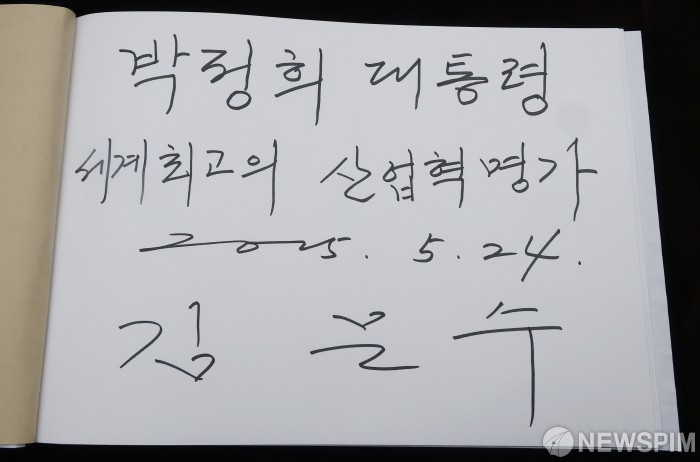 박정희 대통령
세계최고의 산업혁명가
2025. 5. 24.
김문수
NEWSPIM